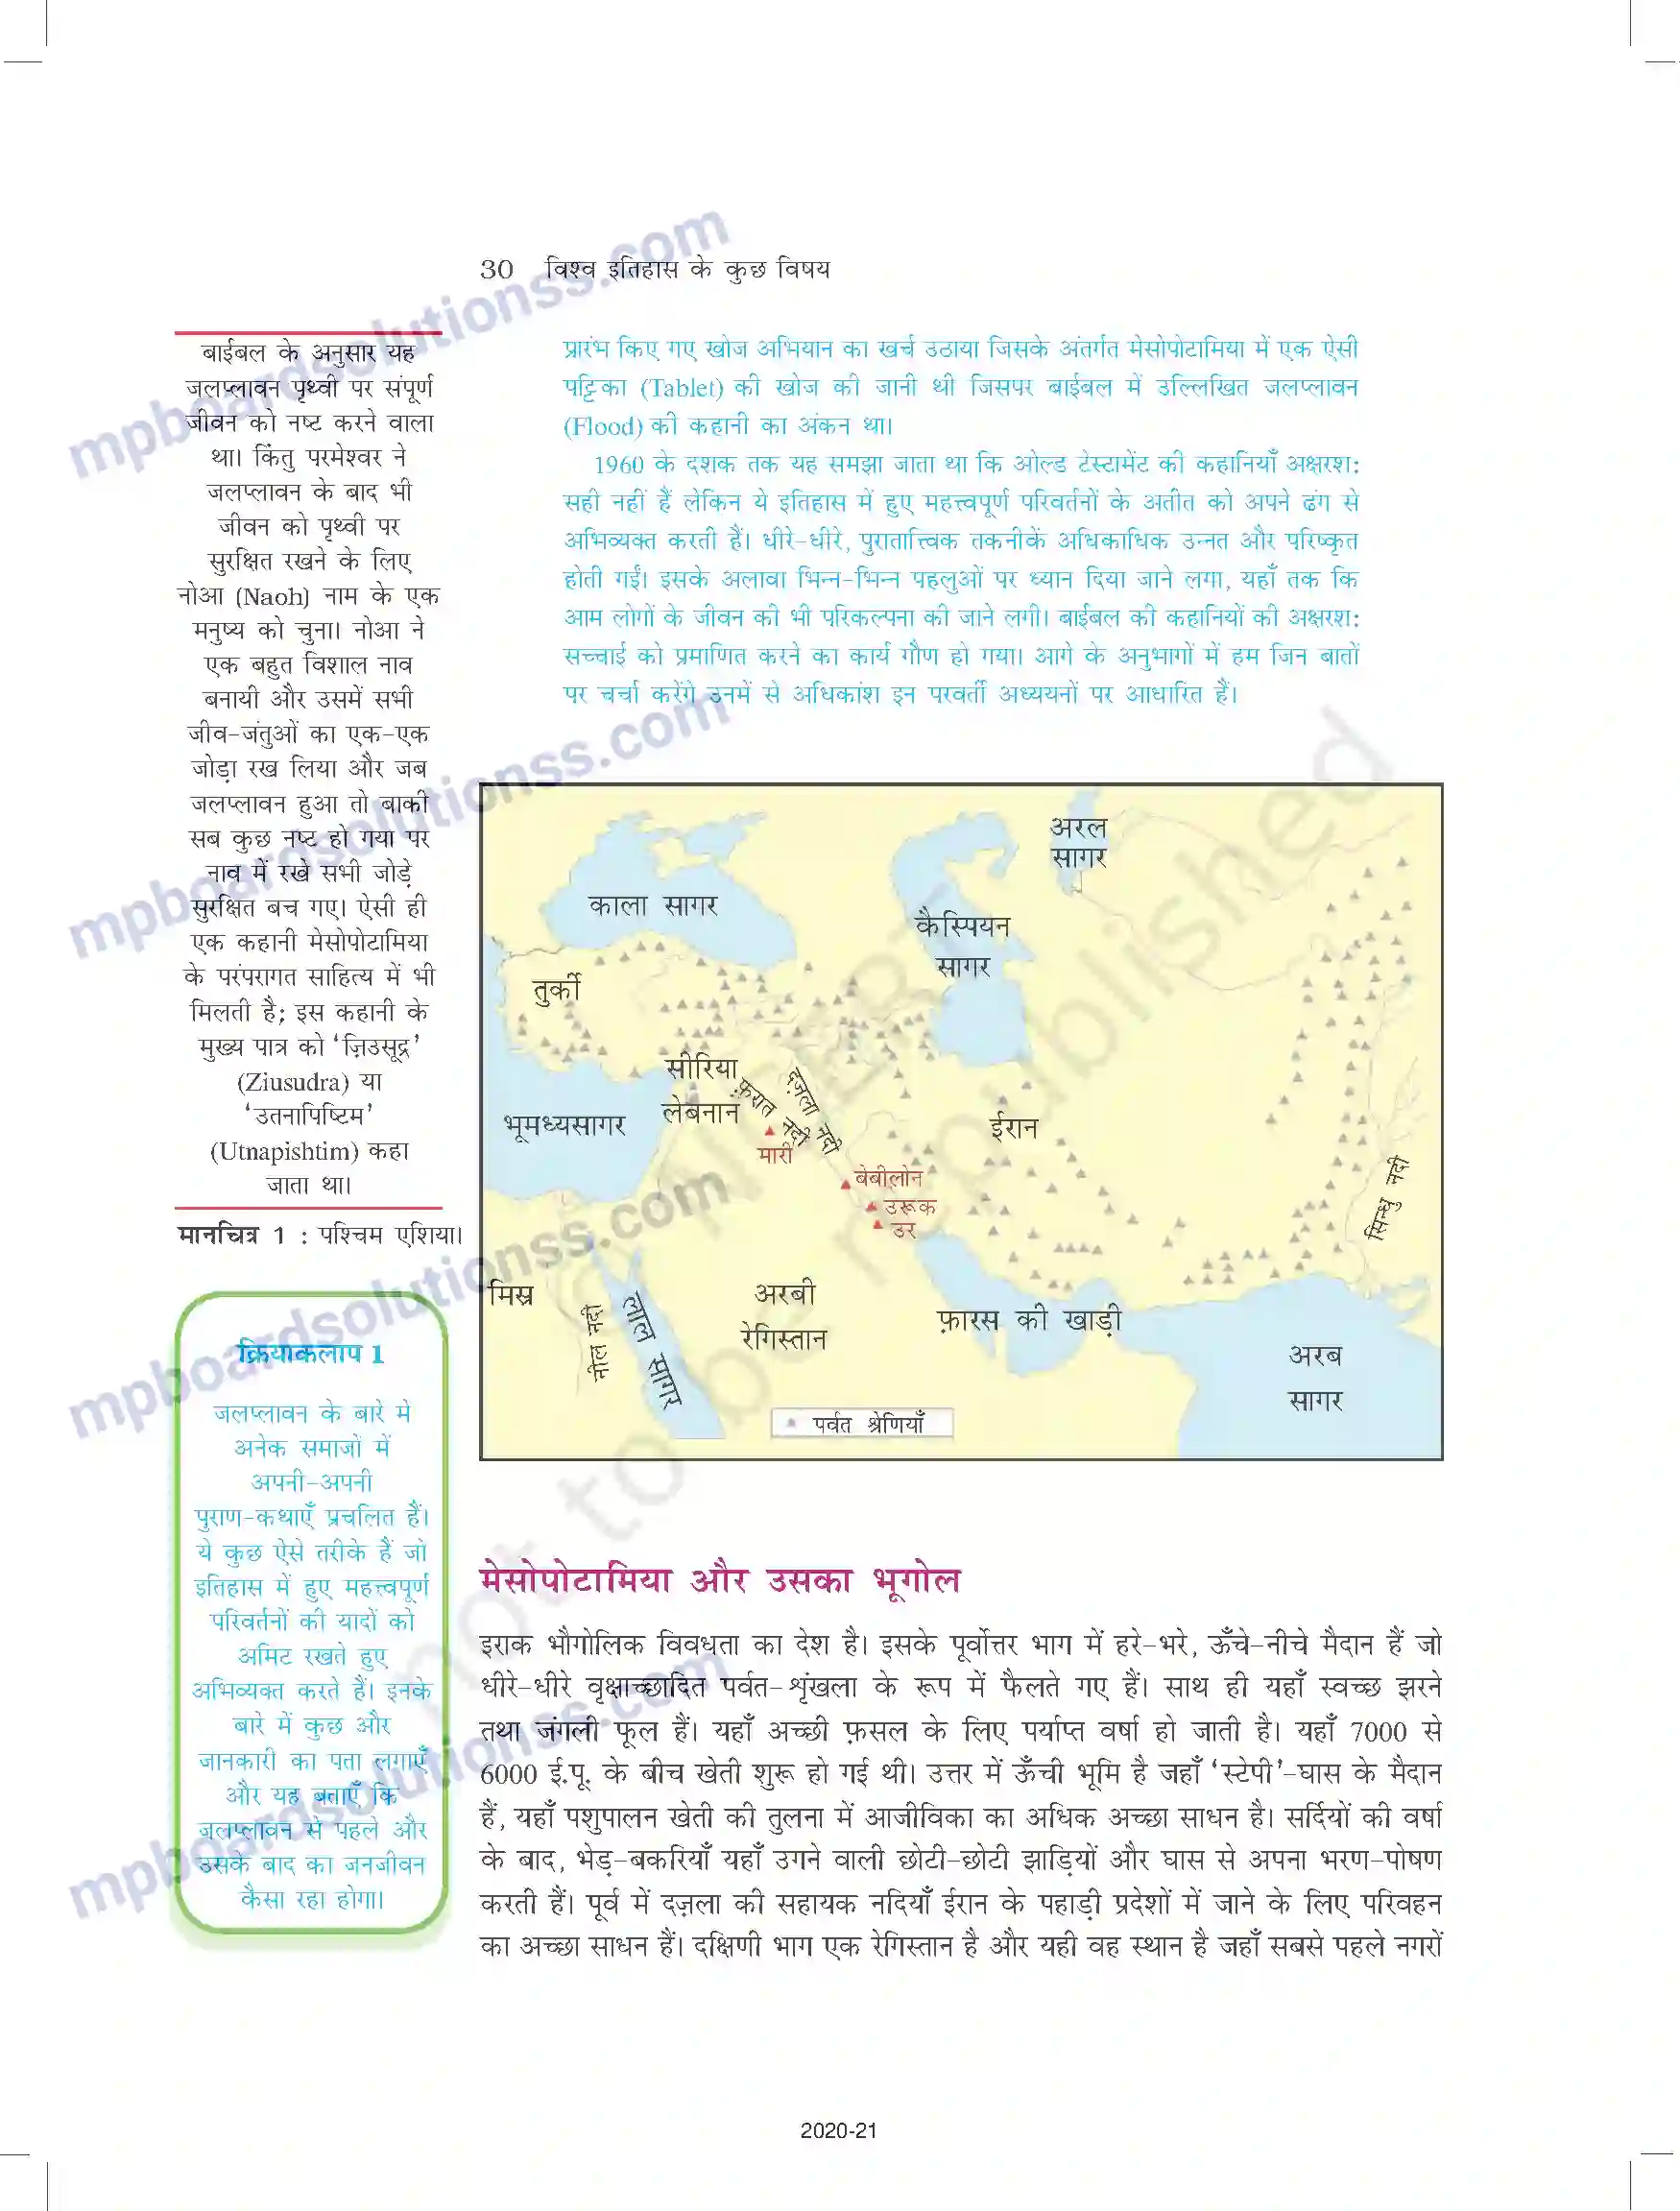 30 विश्व इतिहास के कुछ विषय
बाईबल के अनुसार यह
जलप्लावन पृथ्वी पर संपूर्ण
जीवन को नष्ट करने वाला
था। किंतु परमेश्वर ने
जलप्लावन के बाद भी
जीवन को पृथ्वी पर
सुरक्षित रखने के लिए
नोआ (Naoh) नाम के एक
मनुष्य को चुना। नोआ ने
एक बहुत विशाल नाव
बनायी और उसमें सभी
जीव-जंतुओं का एक-एक
जोड़ा रख लिया और जब
जलप्लावन हुआ तो बाकी
सब कुछ नष्ट हो गया पर
नाव में रखे सभी जोड़े
सुरक्षित बच गए। ऐसी ही
एक कहानी मेसोपोटामिया
के परंपरागत साहित्य में भी
मिलती है; इस कहानी के
मुख्य पात्र को ‘ज़िउसूद्र’
(Ziusudra) या
‘उतनापिष्टिम’
(Utnapishtim) कहा
जाता था।
मानचित्र 1 : पश्चिम एशिया।
क्रियाकलाप 1
जलप्लावन के बारे मे
अनेक समाजों में
अपनी-अपनी
पुराण-कथाएँ प्रचलित हैं।
ये कुछ ऐसे तरीके हैं जो
इतिहास में हुए महत्त्वपूर्ण
परिवर्तनों की यादों को
अमिट रखते हुए
अभिव्यक्त करते हैं। इनके
बारे में कुछ और
जानकारी का पता लगाएँ
और यह बताएँ कि
जलप्लावन से पहले और
उसके बाद का जनजीवन
कैसा रहा होगा।
प्रारंभ किए गए खोज अभियान का खर्च उठाया जिसके अंतर्गत मेसोपोटामिया में एक ऐसी
पट्टिका (Tablet) की खोज की जानी थी जिसपर बाईबल में उल्लिखित जलप्लावन
(Flood) की कहानी का अंकन था।
1960 के दशक तक यह समझा जाता था कि ओल्ड टेस्टामेंट की कहानियाँ अक्षरश:
सही नहीं हैं लेकिन ये इतिहास में हुए महत्त्वपूर्ण परिवर्तनों के अतीत को अपने ढंग से
अभिव्यक्त करती हैं। धीरे-धीरे, पुरातात्त्विक तकनीकें अधिकाधिक उन्नत और परिष्कृत
होती गईं। इसके अलावा भिन्न-भिन्न पहलुओं पर ध्यान दिया जाने लगा, यहाँ तक कि
आम लोगों के जीवन की भी परिकल्पना की जाने लगी। बाईबल की कहानियों की अक्षरश:
सच्चाई को प्रमाणित करने का कार्य गौण हो गया। आगे के अनुभागों में हम जिन बातों
पर चर्चा करेंगे उनमें से अधिकांश इन परवर्ती अध्ययनों पर आधारित हैं।
अरल
सागर
काला सागर
कैस्पियन
सागर
तुर्की
सीरिया
लेबनान
फ़रात नदी
दज़ला नदी
भूमध्यसागर
ईरान
मारी
बेबीलोन
उरूक
उर
सिन्धु नदी
मिस्र
नील नदी
लाल सागर
अरबी
रेगिस्तान
फ़ारस की खाड़ी
अरब
सागर
पर्वत श्रेणियाँ
मेसोपोटामिया और उसका भूगोल
इराक भौगोलिक विवधता का देश है। इसके पूर्वोत्तर भाग में हरे-भरे, ऊँचे-नीचे मैदान हैं जो
धीरे-धीरे वृक्षाच्छादित पर्वत-शृंखला के रूप में फैलते गए हैं। साथ ही यहाँ स्वच्छ झरने
तथा जंगली फूल हैं। यहाँ अच्छी फ़सल के लिए पर्याप्त वर्षा हो जाती है। यहाँ 7000 से
6000 ई.पू. के बीच खेती शुरू हो गई थी। उत्तर में ऊँची भूमि है जहाँ ‘स्टेपी’-घास के मैदान
हैं, यहाँ पशुपालन खेती की तुलना में आजीविका का अधिक अच्छा साधन है। सर्दियों की वर्षा
के बाद, भेड़-बकरियाँ यहाँ उगने वाली छोटी-छोटी झाड़ियों और घास से अपना भरण-पोषण
करती हैं। पूर्व में दज़ला की सहायक नदियाँ ईरान के पहाड़ी प्रदेशों में जाने के लिए परिवहन
का अच्छा साधन हैं। दक्षिणी भाग एक रेगिस्तान है और यही वह स्थान है जहाँ सबसे पहले नगरों
2020-21
mpboardsolutionss.com
mpboardsolutionss.com
mpboardsolutionss.com
mpboardsolutionss.com
not to be republished